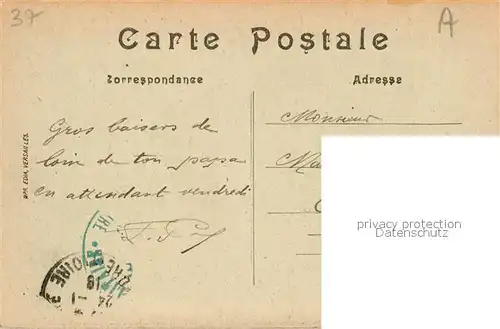 37
A
Carte Postale
Correspondance
Adresse
Monsieur
Gros baisers de
loin de ton papa
en attendant vendredi
IMP. EDIA, VERSAILLES.
privacy protection
Datenschutz